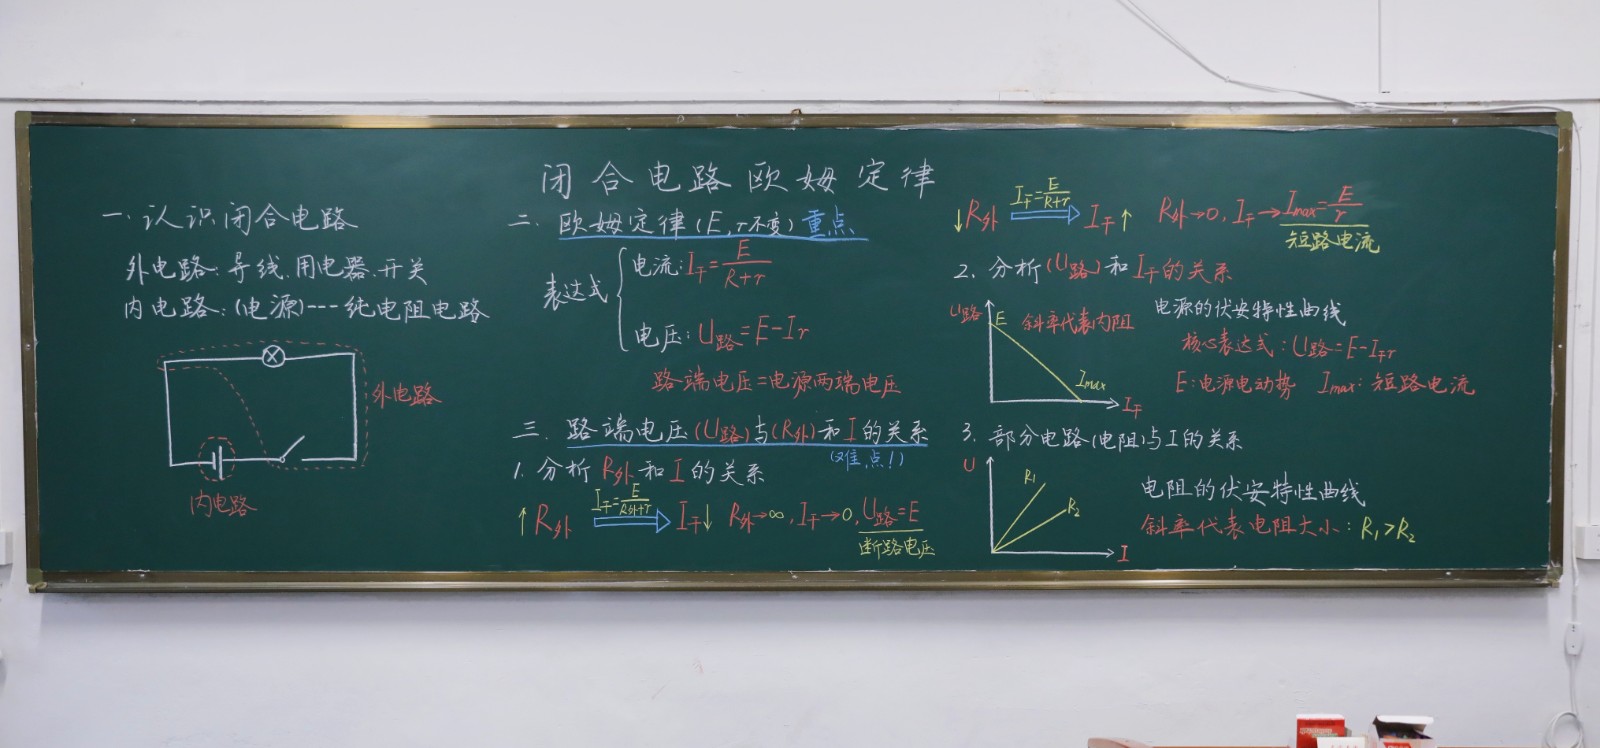 闭合电路欧姆定律
一.认识闭合电路
外电路:导线.用电器.开关
内电路:(电源)---纯电阻电路
外电路
内电路
二.欧姆定律(E,r不变)重点
表达式
电流:I干=E/(R+r)
电压:U路=E-Ir
路端电压=电源两端电压
三.路端电压(U路)与(R外)和I的关系
(难点!)
1.分析R外和I的关系
↑R外 I干=E/(R外+r) ⇒ I干↓ R外→∞,I干→0,U路=E
断路电压
↓R外 I干=E/(R+r) ⇒ I干↑ R外→0,I干→Imax=E/r
短路电流
2.分析(U路)和I干的关系
U路
E
斜率代表内阻
Imax
I干
电源的伏安特性曲线
核心表达式:U路=E-I干r
E:电源电动势 Imax:短路电流
3.部分电路(电阻)与I的关系
U
R₁
R₂
I
电阻的伏安特性曲线
斜率代表电阻大小:R₁>R₂